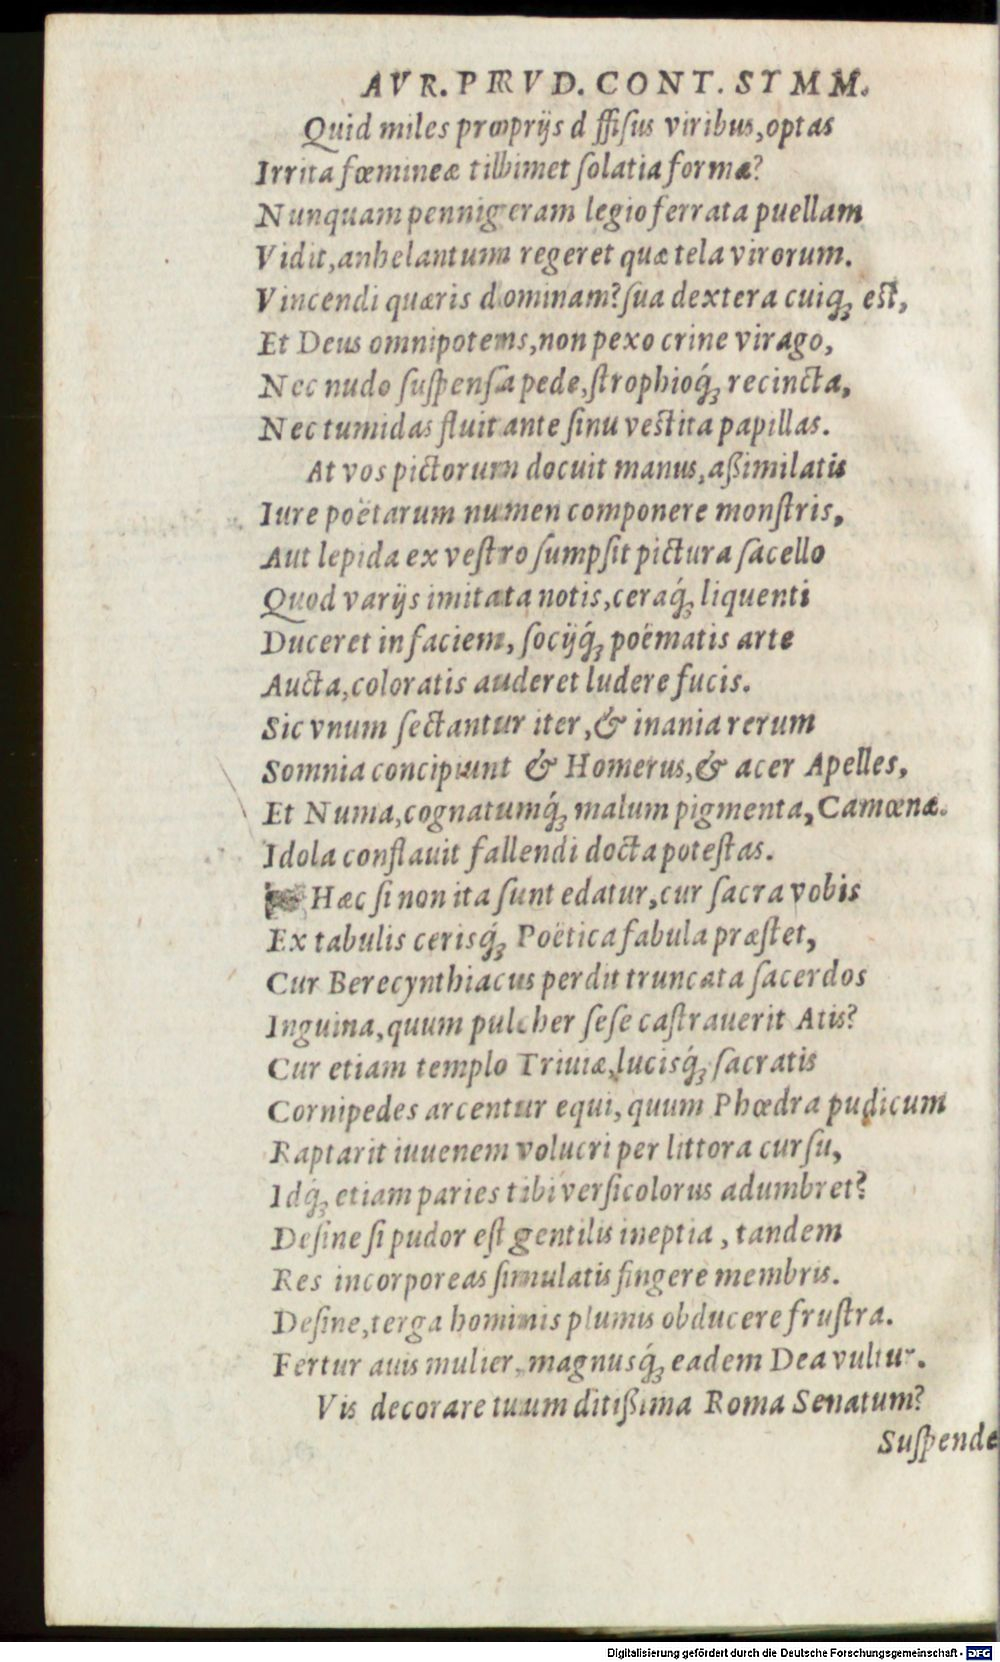 AVR. PRVD. CONT. SYMM.
Quid miles proprijs diffisus viribus, optas
Irrita fœmineæ tibimet solatia formæ?
Nunquam pennigeram legio ferrata puellam
Vidit, anhelantum regeret quæ tela virorum.
Vincendi quæris dominam? sua dextera cuiq; est,
Et Deus omnipotens, non pexo crine virago,
Nec nudo suspensa pede, strophioq́; recincta,
Nec tumidas fluitante sinu vestita papillas.
At vos pictorum docuit manus, aßimilatis
Iure poëtarum numen componere monstris,
Aut lepida ex vestro sumpsit pictura sacello
Quod varijs imitata notis, ceraq́; liquenti
Duceret in faciem, socijq́; poëmatis arte
Aucta, coloratis auderet ludere fucis.
Sic vnum sectantur iter, & inania rerum
Somnia concipiunt & Homerus, & acer Apelles,
Et Numa, cognatumq́; malum pigmenta, Camœnæ.
Idola conflauit fallendi docta potestas.
Hæc si non ita sunt edatur, cur sacra vobis
Ex tabulis cerisq́; Poëtica fabula præstet,
Cur Berecynthiacus perdit truncata sacerdos
Inguina, quum pulcher sese castrauerit Atis?
Cur etiam templo Triuiæ, lucisq́; sacratis
Cornipedes arcentur equi, quum Phœdra pudicum
Raptarit iuuenem volucri per littora cursu,
Idq́; etiam paries tibi versicolorus adumbret?
Desine si pudor est gentilis ineptia, tandem
Res incorporeas simulatis fingere membris.
Desine, terga hominis plumis obducere frustra.
Fertur auis mulier, magnusq́; eadem Dea vultur.
Vis decorare tuum ditißima Roma Senatum?
Suspende
Digitalisierung gefördert durch die Deutsche Forschungsgemeinschaft - DFG